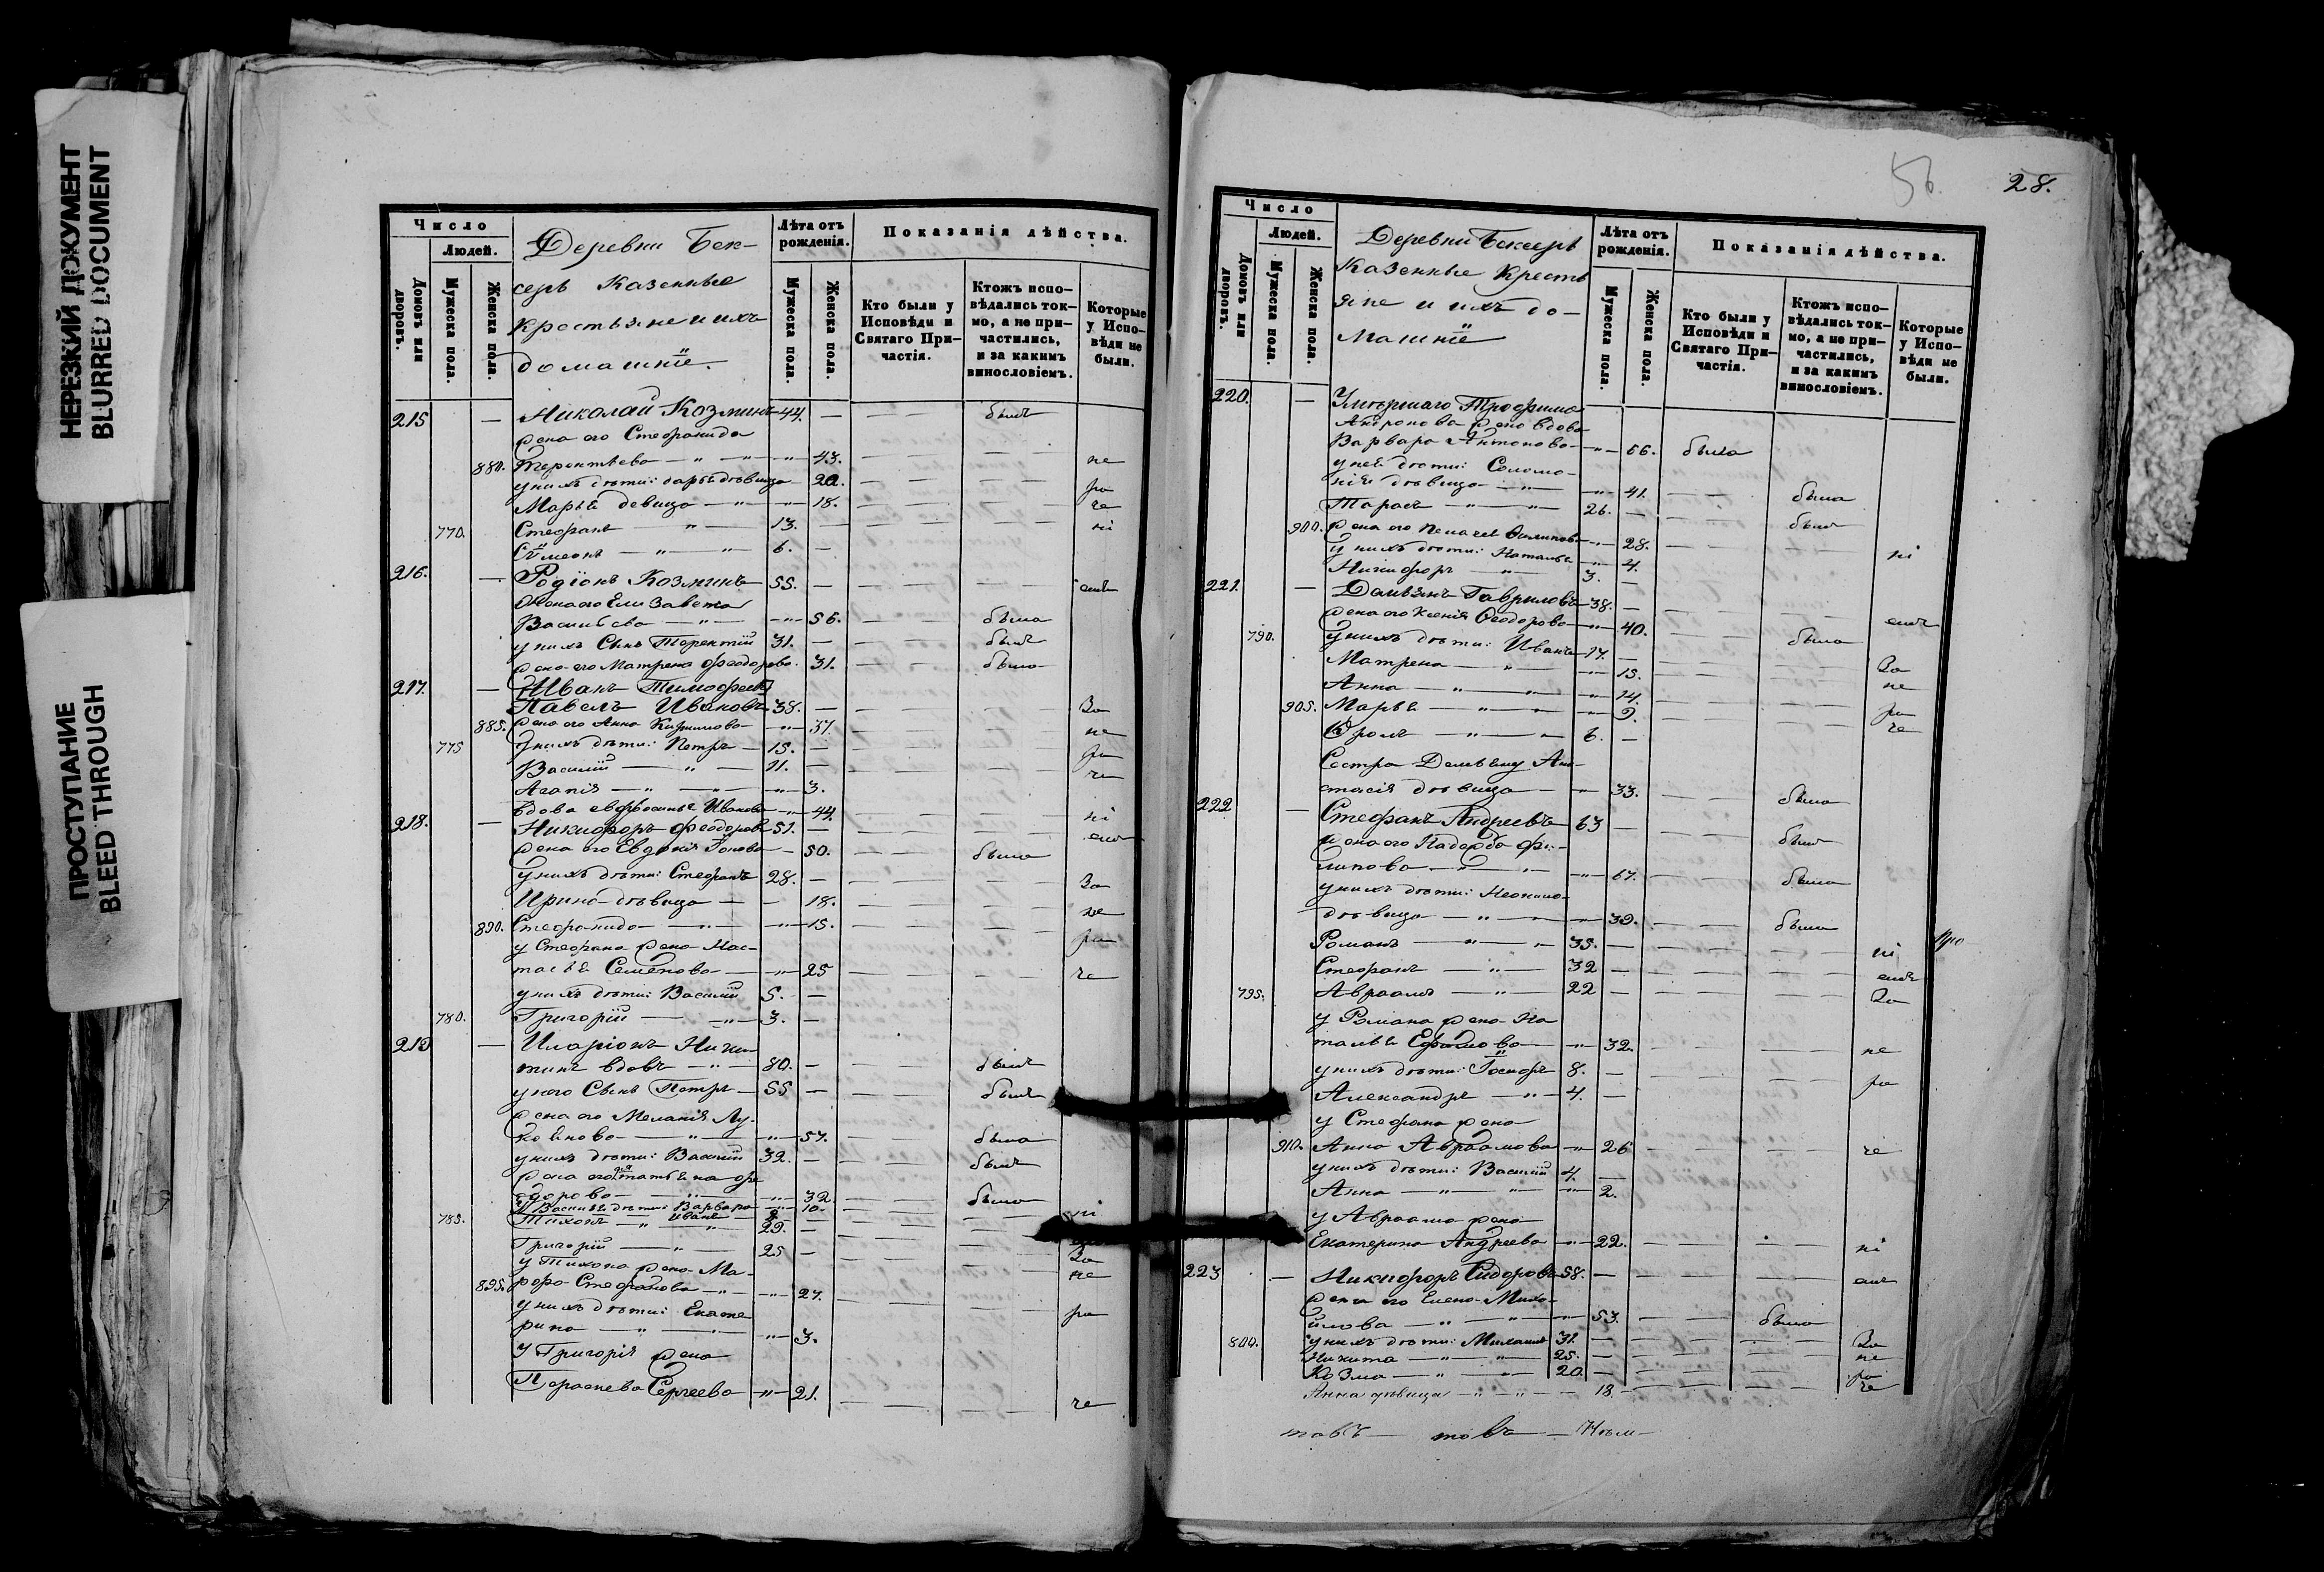 НЕРЕЗКИЙ ДОКУМЕНТ
BLURRED DOCUMENT
ПРОСТУПАНИЕ
BLEED THROUGH
Число
Людей.
Домовъ или дворовъ.
Мужеска пола.
Женска пола.
Деревни Бек-
серь Казенные
крестьяне и ихъ
домашнїе.
Лѣта отъ рожденія.
Мужеска пола.
Женска пола.
Показанія дѣйства.
Кто были у Исповѣди и Святаго При-частія.
Ктожъ испо-вѣдались ток-мо, а не при-частились, и за какимъ винословіемъ.
Которые у Испо-вѣди не были.
215 — Николай Козминъ 44. — былъ
жена его Стефанида
880. Терентьева 43. не
у нихъ дѣти: Дарья дѣвица 20. ра
Марья девица 18. че
770. Стефанъ 13. — нi
Сѵмеонъ 6. —
216. — Родіонъ Козминъ 55. — емъ
Жена его Елизавета
Васильева 56. была
у нихъ Сынъ Терентій 31. — былъ
жена его Матрена Феодорова 31. была
217. — Иванъ Тимофеев
Павелъ Ивановъ 38. — За
885. жена его Анна Кирилова 37. не
775 У нихъ дѣти: Петръ 15. — ра
Василій 11. — че
Агапія 3.
Вдова Ефросинья Иванова 44. нi
218. — Никифоръ Феодоровъ 51. — емъ
жена его Евдокія Іонова 50. была
У нихъ дѣти: Стефанъ 28. — За
Ирина дѣвица 18. не
890. Стефанида 15. ра
у Стефана жена Нас-
тасья Семенова 25 че
у нихъ дѣти: Василій 5. —
780. Григорій 3. —
219 — Иларіонъ Ники-
тинъ вдовъ 80. — былъ
у него Сынъ Петръ 55 — былъ
жена его Меланія Лу-
коянова 57. была
у нихъ дѣти: Василій 32. — былъ
едорова 32 была
У Василія дѣти: Варвара 10. нi
785. Тихонъ Иванъ 29. —
Григорій 25 — За
у Тихона жена Ма- не
895. рфа Стефанова 27.
у нихъ дѣти: Екате- ра
рина 3.
У Григорія жена
Парасковья Сергеева 21. че
56.
28.
Число
Людей.
Домовъ или дворовъ.
Мужеска пола.
Женска пола.
Деревни Бексерь
Казенные Кресть
яне и ихъ до-
машнїе
Лѣта отъ рожденія.
Мужеска пола.
Женска пола.
Показанія дѣйства.
Кто были у Исповѣди и Святаго При-частія.
Ктожъ испо-вѣдались ток-мо, а не при-частились, и за какимъ винословіемъ.
Которые у Испо-вѣди не были.
220. — Умершаго Трофима
Антропова жена вдова
Варвара Антонова 66. была
у ней дѣти: Соломо-
нія дѣвица 41. была
Тарасъ 26. — былъ
900. жена его 28. нi
у нихъ дѣти: Наталья 4.
Никифоръ 3. —
221. — Демьянъ Гавриловъ 38. — емъ
жена его Ксенія Феодорова 40. была
790. У нихъ дѣти: Иванъ 17. — За
Матрена 15. не
Анна 14. ра
905. Марья 9. че
Фролъ 6. —
Сестра Демьяну Ана-
стасія дѣвица 33. была
222 — Стефанъ Андреевъ 63 — былъ
жена его Надежда Фи-
липова 67. была
у нихъ дѣти: Неонила
дѣвица 39. была
Романъ 35. — нi
Стефанъ 32 — емъ
795. Авраамъ 22 — За
у Романа жена На
талья Ефимова 32. не
у нихъ дѣти: Іосифъ 8. — ра
Александръ 4. —
у Стефана жена
910. Анна Авраамова 26 че
у нихъ дѣти: Василій 4. —
Анна 2.
у Авраама жена
Екатерина Андреева 22. нi
223 — Никифоръ Сидоровъ 58. — емъ
жена его Елена Миха-
йлова 53. была
800. у нихъ дѣти: 31. — За
Никита 25. — не
Козма 20. — ра
Анна дѣвица 18. че